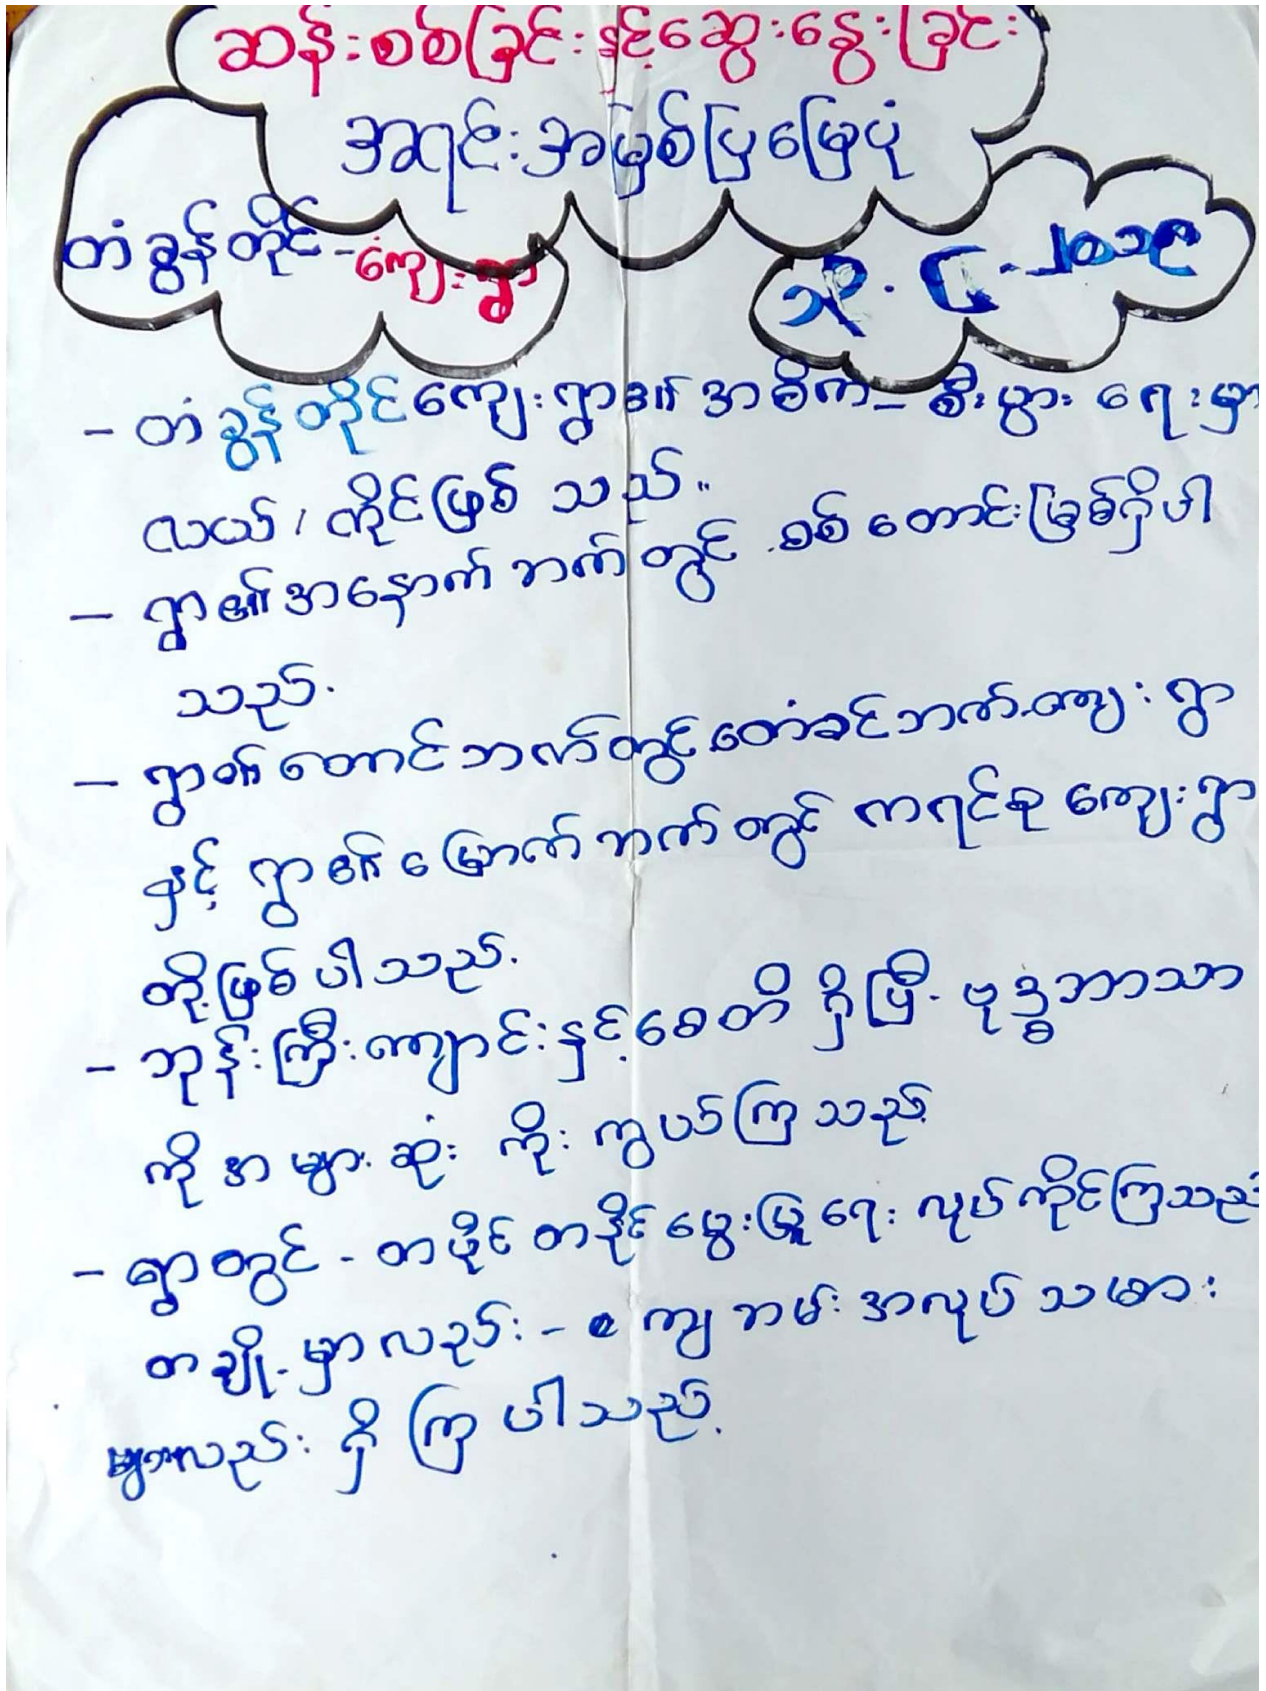 ဆန်းစစ်ခြင်းနှင့်ဆွေးနွေးခြင်း
အရင်းအမြစ်ပြမြေပုံ
တံခွန်တိုင်-ကျေးရွာ
၂၀၁၉
- တံခွန်တိုင်ကျေးရွာ၏ အဓိက- စီးပွားရေးမှာ
လယ်/ ကိုင်းဖြစ် သည်။
- ရွာ၏အနောက် ဘက်တွင် စစ်တောင်းမြစ်ရှိပါ
သည်.
- ရွာ၏တောင်ဘက်တွင် တံခွင်ဘက်ကျေးရွာ
နှင့် ရွာ၏မြောက်ဘက်တွင် ကရင်စု ကျေးရွာ
တို့ဖြစ်ပါသည်.
- ဘုန်းကြီးကျောင်းနှင့်စေတီ ရှိပြီ. ဗုဒ္ဓဘာသာ
ကိုအများဆုံး ကိုးကွယ်ကြသည်
- ရွာတွင် - တပိုင်တနိုင်မွေးမြူရေး လုပ်ကိုင်ကြသည်
တချို့မှာလည်း - ကျဘမ်းအလုပ်သမား
များလည်း ရှိကြပါသည်